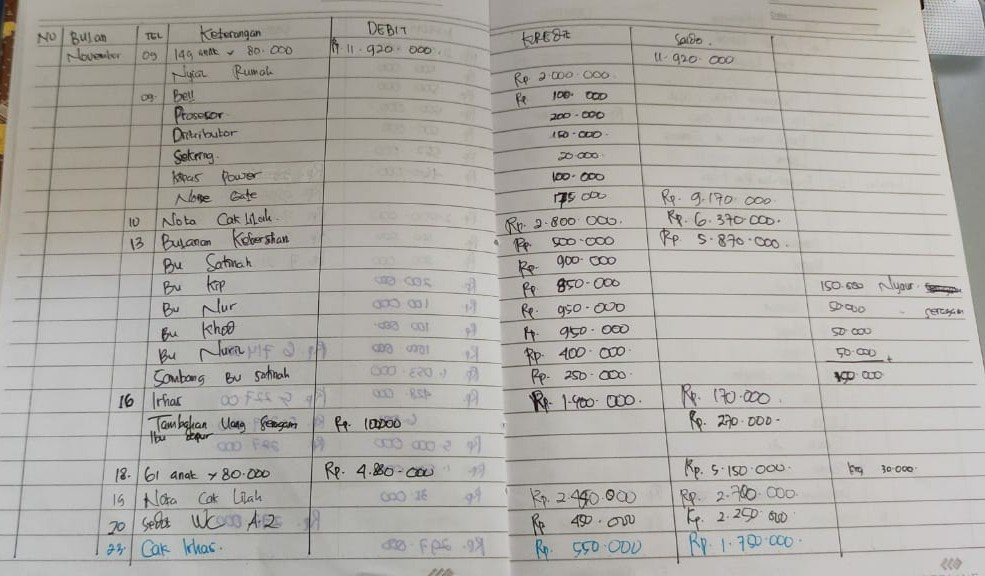 NO Bulan TGL Keterangan DEBIT KREDIT Saldo.
November 09 149 anak x 80.000 Rp 11.920.000. 11.920.000
Nyiar Rumah Rp 2.000.000.
09. Bell Rp 100.000
Prosesor. 200.000
Distributor 150.000.
Sekring. 20.000.
Kipas Power 100.000
Noise Gate 175.000 Rp. 9.170.000.
10 Nota Cak Lilah. Rp. 2.800.000. Rp. 6.370.000.
13 Bulanan Kebershan Rp. 500.000 Rp. 5.870.000.
Bu Satinah Rp. 900.000
Bu Kip Rp 850.000 150.000 Nyaur.
Bu Nur Rp. 950.000 50.000 seragam
Bu Khoo Rp. 950.000 50.000
Bu Nurul Rp. 400.000. 50.000 +
Sambang Bu Satinah Rp. 250.000.
16 Irhas Rp. 1.400.000. Rp. 170.000.
Tambahan Uang Seragam Rp. 100000 Rp. 270.000.
Ibu dapur
18. 61 anak x 80.000 Rp. 4.880.000 Rp. 5.150.000. 30.000.
19 Nota Cak Lilah Rp. 2.450.000 Rp. 2.700.000.
20 Sedot WC A.2 Rp 450.000 Rp. 2.250.000
23. Cak Irhas. Rp. 550.000 Rp. 1.750.000.